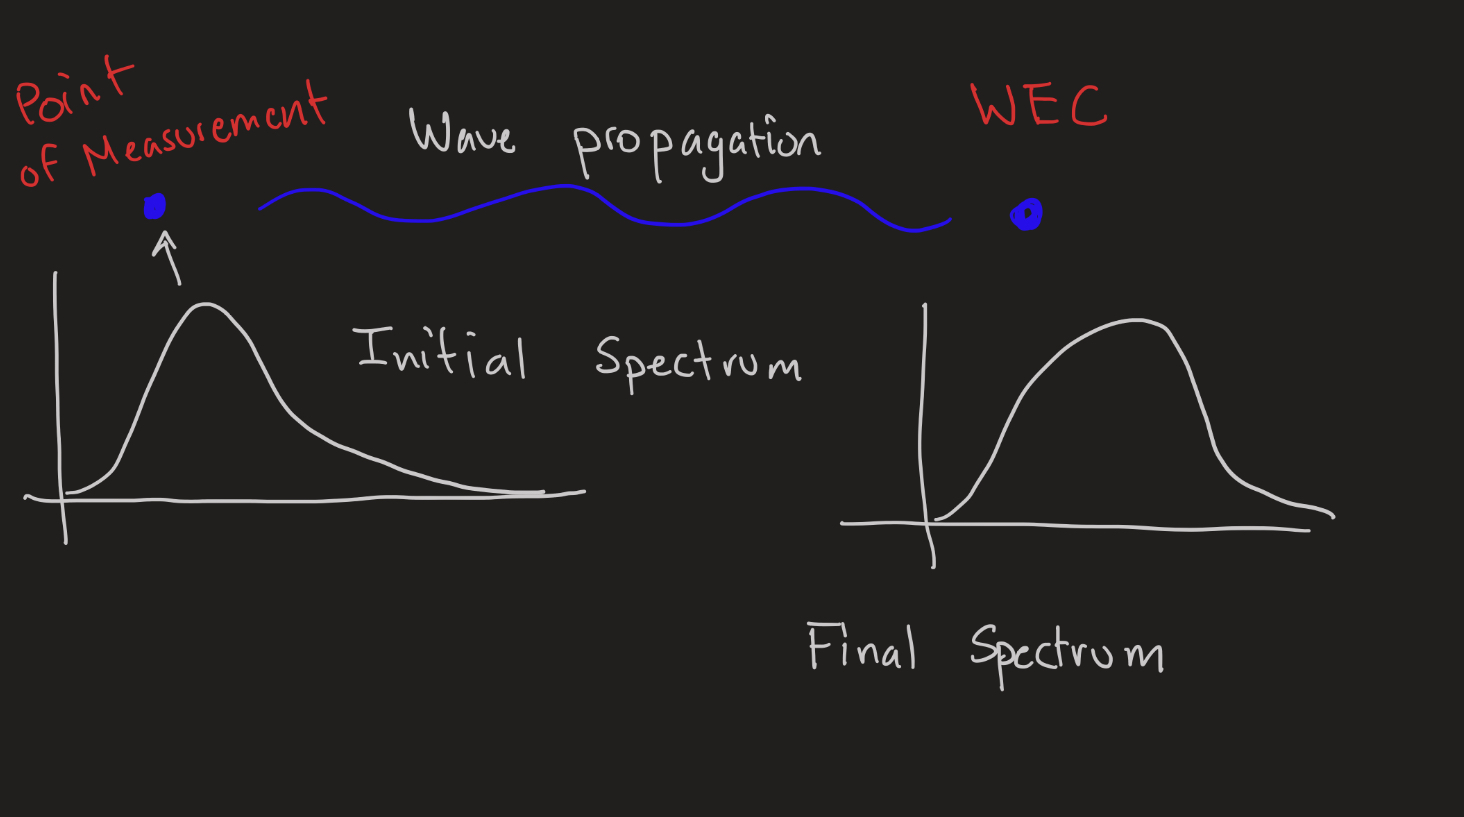 Point
of Measurement
Wave propagation
WEC
Initial Spectrum
Final Spectrum